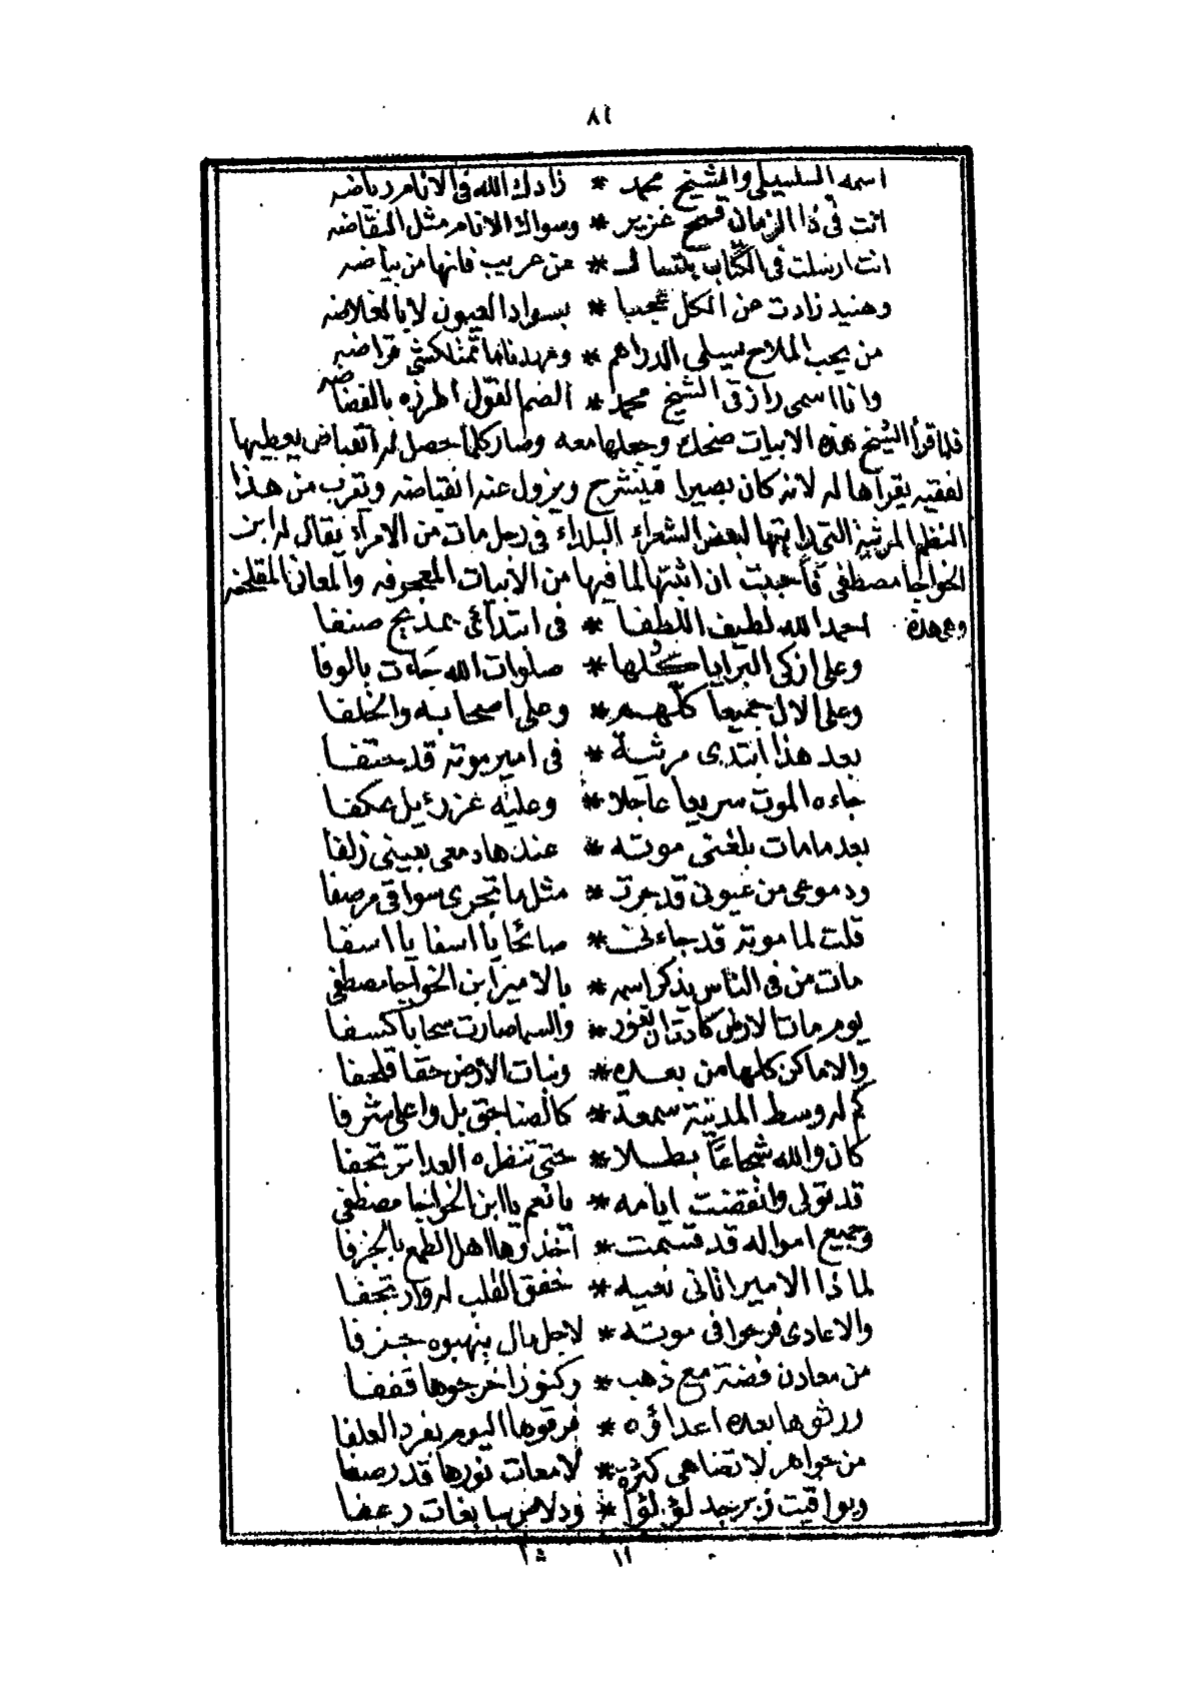 ٨١
اسمه السلسيلى والشيخ محمد * زادك الله فى الانام رياضه
انت فى ذا الزمان قمح غزير * وسواك الانام مثل النقاضه
انت ارسلت فى الكتاب * عن عريب فانها من بياضه
وهنيد زادت عن الكل عجبا * بسواد العيون لا بالغلاضه
من يحب الملاح يسلى الدراهم * قراضه
وانا اسمى رازق الشيخ محمد * انضم القول اطرزه بالفضاضه
فلما قرأ الشيخ هذه الابيات ضحك وجعلها معه وصار كلما حصل له انقباض يعطيها
لفقيه يقرأها له لانه كان بصيرا فينشرح ويزول عنه انقباضه وتقرب من هذا
النظم المرثية التى رايتها لبعض الشعراء البلداء فى رجل مات من الامرآء يقال له ابن
الخواجا مصطفى فأحببت ان اثبتها لما فيها من الابيات المعجرفه والمعانى المقلحفه
وهى هذة احمد الله لطيف اللطفا * فى ابتدآئى بمديح صنفا
وعلى ازكى البرايا كلها * صلوات الله جاءت بالوفا
وعلى الال جميعا كلهم * وعلى اصحابه والخلفا
بعد هذا ابتدى مرثية * فى امير موته قد حتفا
جاءه الموت سريعا عاجلا * وعليه عزرئيل عكفا
بعد ما مات بلغنى موته * عندها دمعى بعينى زلفا
ودموعى من عيونى قد جرت * مثل ما تجرى سواقى مرصفا
قلت لما موته قد جاءنى * صائحا يا اسفا يا اسفا
مات من فى الناس يذكر اسمه * بالامير ابن الخواجا مصطفى
يوم مات الارض كادت ان تغور * والسما صارت سحابا كسفا
والاماكن كلها من بعده * ونبات الأرض حقا قلحفا
كم له وسط المدينة سمعة * كالصناجق بل واعلى شرفا
كان والله شجاعا بطلا * حتى تنظره العدا ترتجفا
قد تولى وانقضت ايامه * يا نعم يا ابن الخواجا مصطفى
وجميع امواله قد قسمت * اتخذوها اهل الطمع بالجزفا
لما ذا الامير اتانى نعيه * خفق القلب له وارتجفا
والاعادى فرحوا فى موته * لاجل مال ينهبوه جزفا
من معادن فضة مع ذهب * وكنوز اخرجوها قففا
ورثوها بعده اعداؤه * فرقوها اليوم بفرد العلفا
من جواهر لا تضاهى كثرة * لامعات نورها قد رصفا
ويواقيت زبرجد لؤلؤا * ودلاص سابغات رعفا
١١